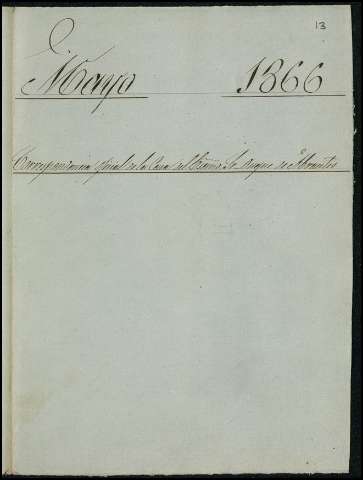 13
Mayo 1866
Correspondencia oficial de la Casa del Excmo Sr Duque de Abrantes